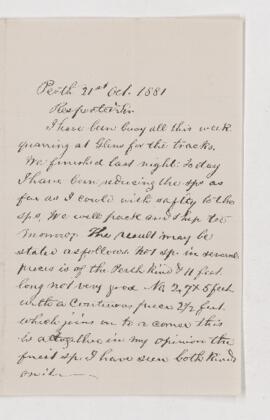 Perth 21st Oct. 1881
Respected Sir
I have been busy all this week
quarring at Glens for the tracks.
We finished last night: To day
I have been reducing the sps as
far as I could with safty to the
sps. We will pack and ship to
morrow. The result may be
stated as follows. No 1 sp. in several
pieces is of the Perth Kind & 11 feet
long not very good No 2, 7 x 5 feet
with a Continous piece 2½ feet
which joins on to a corner this
is altogether in my opinion the
finest sp. I have seen both Kinds